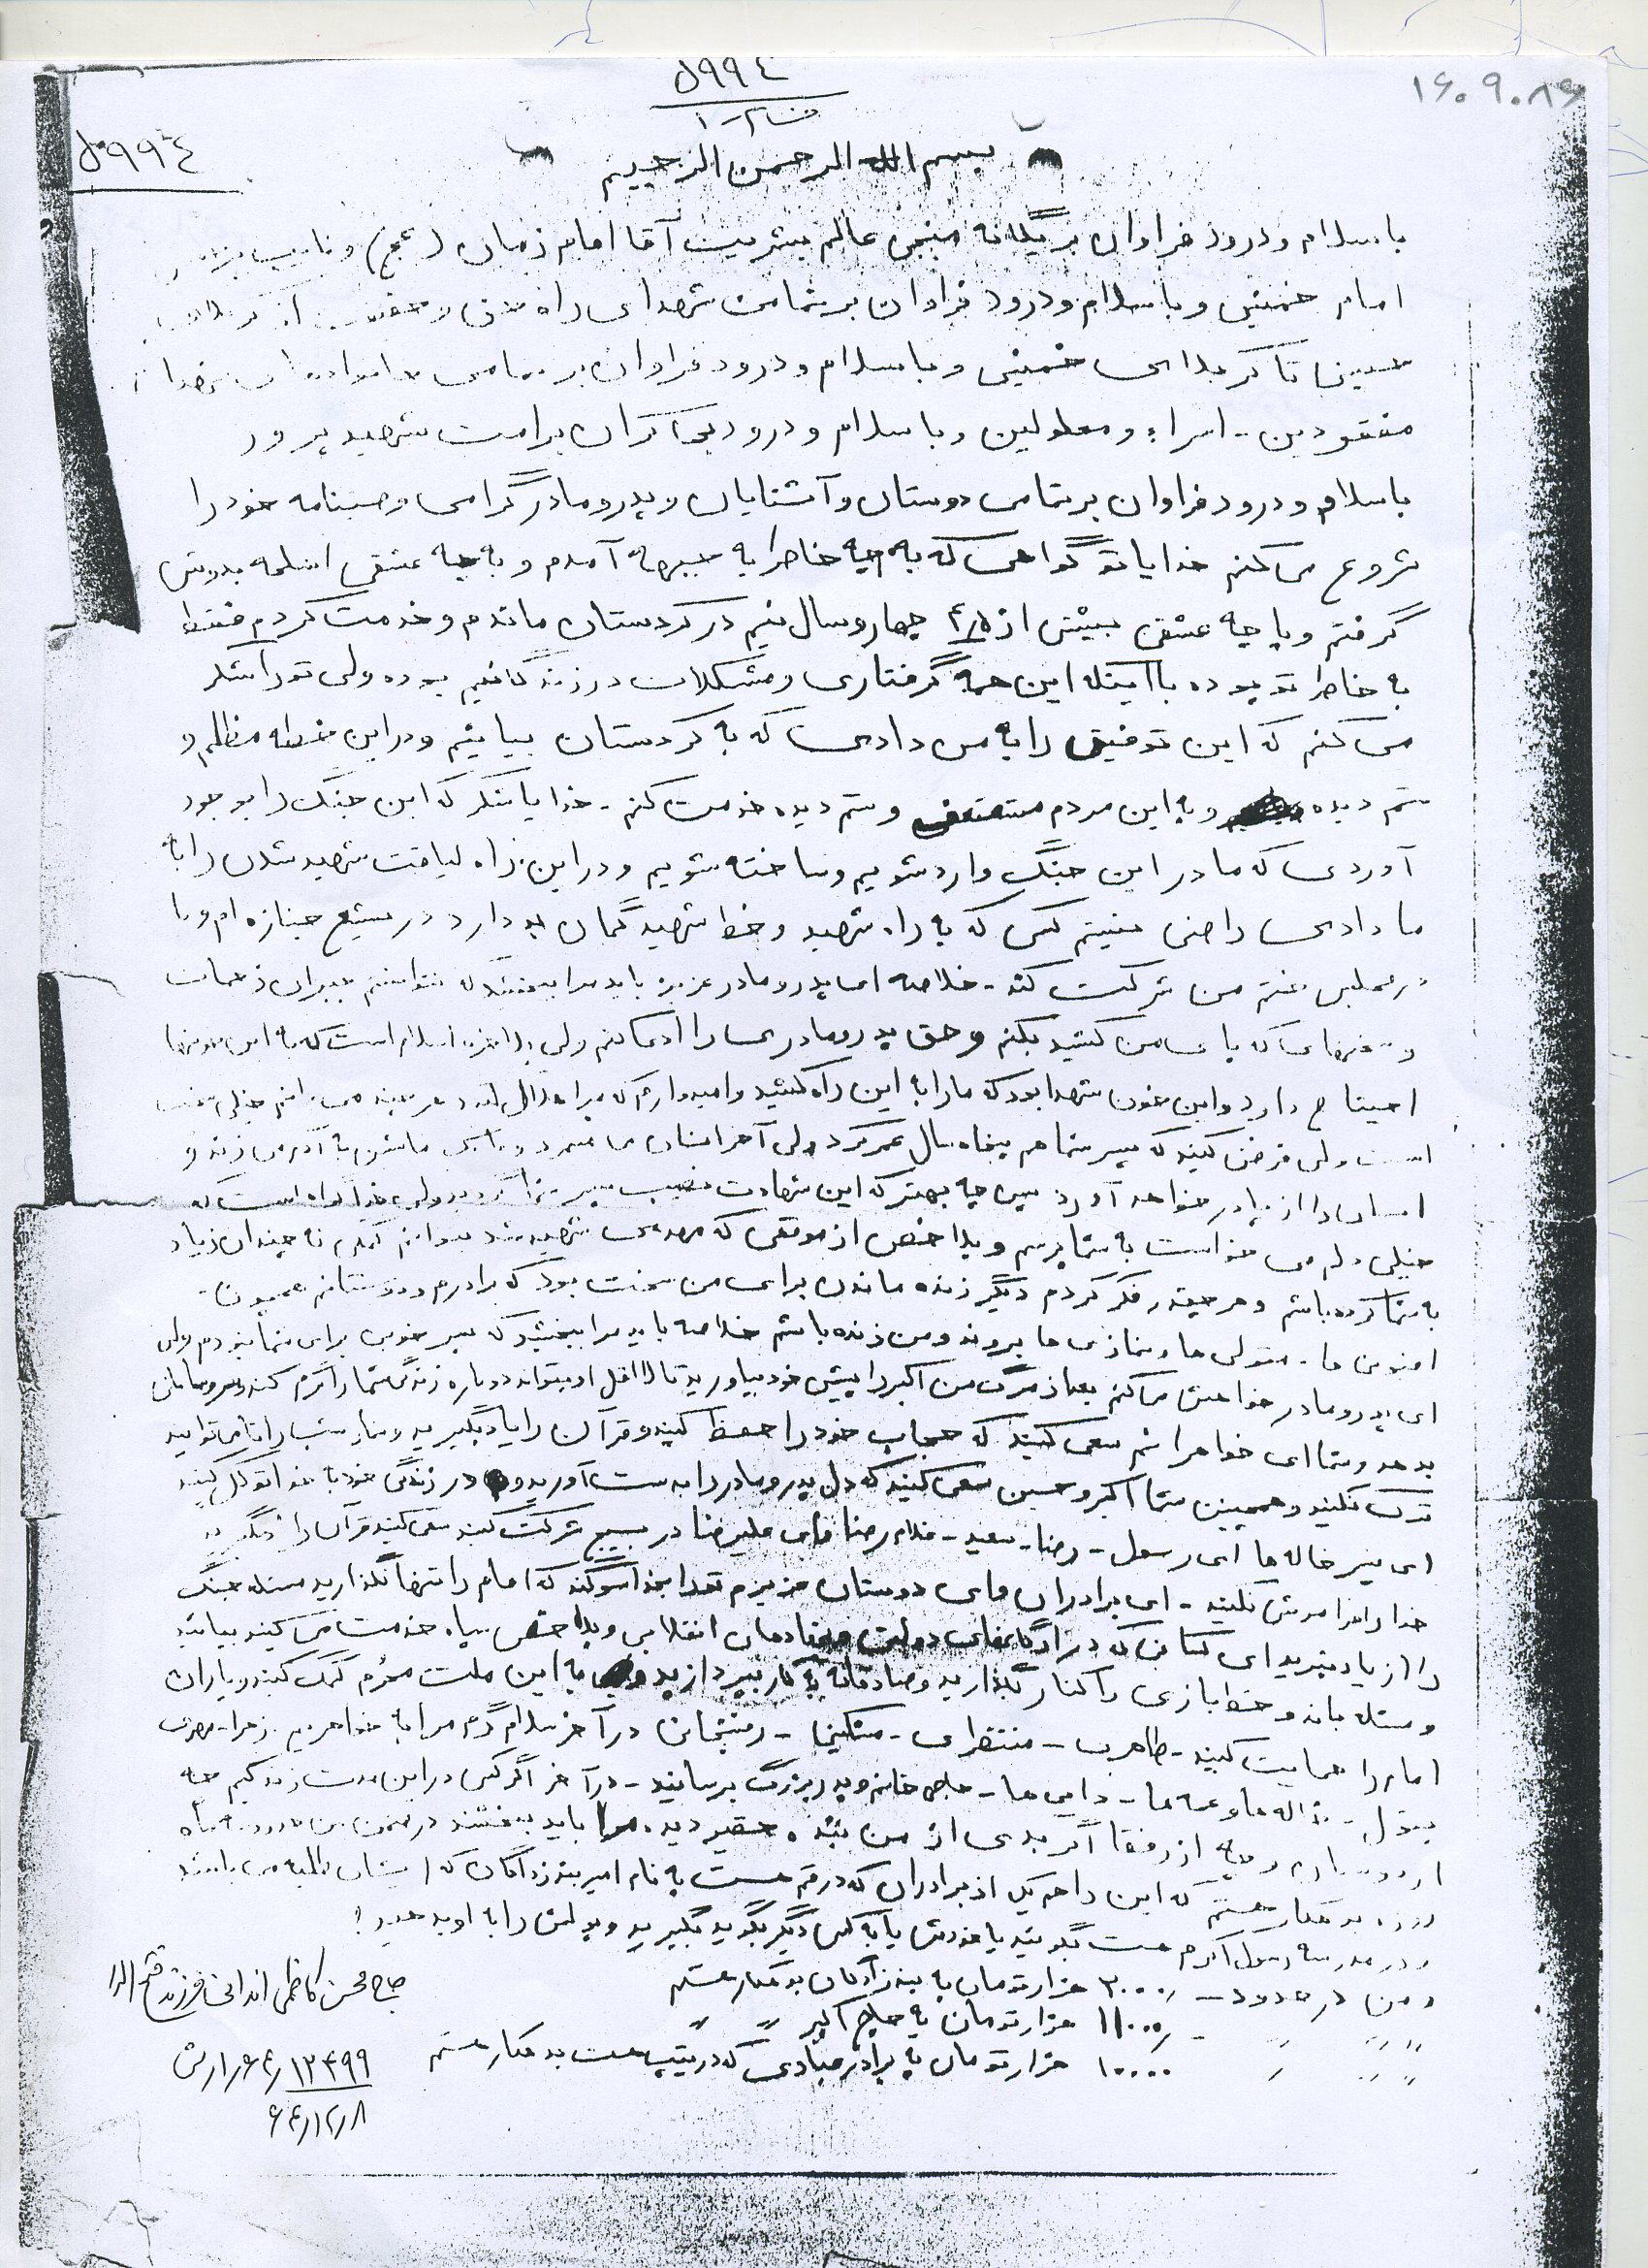 ۵۹۹٤
۱۶۰۹۰۸۶
۵۹۹٤
بسم الله الرحمن الرحیم
با سلام و درود فراوان بر یگانه منجی عالم بشریت آقا امام زمان (عج) و نایب
امام خمینی و با سلام و درود فراوان بر تمامی شهدای راه حق و حقیقت از کربلای
حسین تا کربلای خمینی و با سلام و درود فراوان بر تمامی خانواده‌های شهدا
مفقودین - اسراء و معلولین و با سلام و درود بیکران بر امت شهید پرور
با سلام و درود فراوان بر تمامی دوستان و آشنایان و پدر و مادر گرامی وصیتنامه خود را
شروع می کنم خدایا تو گواهی که به چه خاطر به جبهه آمدم و به چه عشقی اسلحه بدوش
گرفتم و با چه عشقی بیش از چهار و سال نیم در کردستان ماندم و خدمت کردم فقط
به خاطر تو بوده با اینکه این همه گرفتاری و مشکلات در زندگانیم بوده ولی تو را شکر
می کنم که این توفیق را به من دادی که به کردستان بیایم و در این خطه مظلم و
ستم دیده و به این مردم مستضعف و ستم دیده خدمت کنم - خدایا شکر که این جنگ را بوجود
آوردی که ما در این جنگ وارد شویم و ساخته شویم و در این راه لیاقت شهید شدن را به
ما دادی راضی نیستم کسی که به راه شهید و خط شهید گمان بد دارد در تشیع جنازه ام و یا
در مجلس ختم من شرکت کند - خلاصه ای پدر و مادر عزیز باید مرا ببخشید که نتوانستم جبران زحمات
و که پای من کشید بکنم و حق پدر و مادری را ادا کنم ولی اسلام است که به این خونها
احتیاج دارد و این خون شهدا بود که ما را به این راه کشید و امیدوارم که مرا حلال کنید هر چند می دانم خیلی سخت
است ولی فرض کنید که پسر شما هم پنجاه سال عمر کرد ولی آخر انسان می میرد و
انسان را از پا در خواهد آورد پس چه بهتر که این شهادت نصیب پسر شما گردد ولی خدا گواه است که
خیلی دلم می خواست به شما برسم و بلاخص از موقعی که مهدی شهید شد نتوانستم کمک نه چندان زیاد
به شما کرده باشم و هر چقدر فکر کردم دیگر زنده ماندن برای من سخت بود که برادرم و دوستانم همچون
ها - متولی ها و نمازی ها بروند و من زنده باشم خلاصه باید مرا ببخشید که پسر خوبی برای شما نبودم ولی
ای پدر و مادر خواهش می کنم بعد از مرگ من اکبر را پیش خود بیاورید تا لااقل او بتواند دوباره زندگی شما را گرم کند و سر و سامان
بدهد و شما ای خواهرانم سعی کنید که حجاب خود را حفظ کنید و قرآن را یاد بگیرید و نماز شب را تا می توانید
ترک نکنید و همچنین شما اکبر و حسین سعی کنید که دل پدر و مادر را بدست آورید و در زندگی خود به خدا توکل کنید
ای پسر خاله ها ای رسول - رضا - سعید - غلامرضا علیرضا در بسیج شرکت کنید سعی کنید قرآن را
خدا را فراموش نکنید - ای برادران و ای دوستان عزیزم شما را بخدا سوگند که امام را تنها نگذارید مسئله جنگ
را از یاد نبرید ای کسانی که در ارگانهای دولتی و نهادهای انقلابی و بلاخص سپاه خدمت می کنید بیایید
و مسئله باند و خط بازی را کنار بگذارید و صادقانه به کار بپردازید و به این ملت محروم کمک کنید و یاران
امام را حمایت کنید - طاهری - منتظری - مشکینی - رفسنجانی در آخر سلام گرم مرا به خواهرم زهرا - مهری
بتول - خاله ها و عمه ها - دایی ها - حاجی خانم و پدر بزرگ برسانید - در آخر اگر کسی در این مدت زندگیم چه
و چه از رفقا اگر بدی از من حقیر دیده مرا باید ببخشند در ضمن من حدود سه ماه
روزه بدهکار هستم که این را هم یکی از برادران که در قم هست به نام امیر بنده زادگان که ایشان طلبه می باشند
و در مدرسه رسول اکرم هست بگویید یا خودش یا به کس دیگر بگوید بگیرید و پولش را به او بدهید!
و من در حدود ۲۰۰۰ هزار تومان به بنده زادگان بدهکار هستم
۱۱۰۰۰ هزار تومان به حاج اکبر
۱۰۰۰۰ هزار تومان به برادر عبادی که در تیپ هست بدهکار هستم
حاج محسن کاظمی اندانی فرزند فتح الله
۱۲۴۹۹
۶۴/۱۲/۸